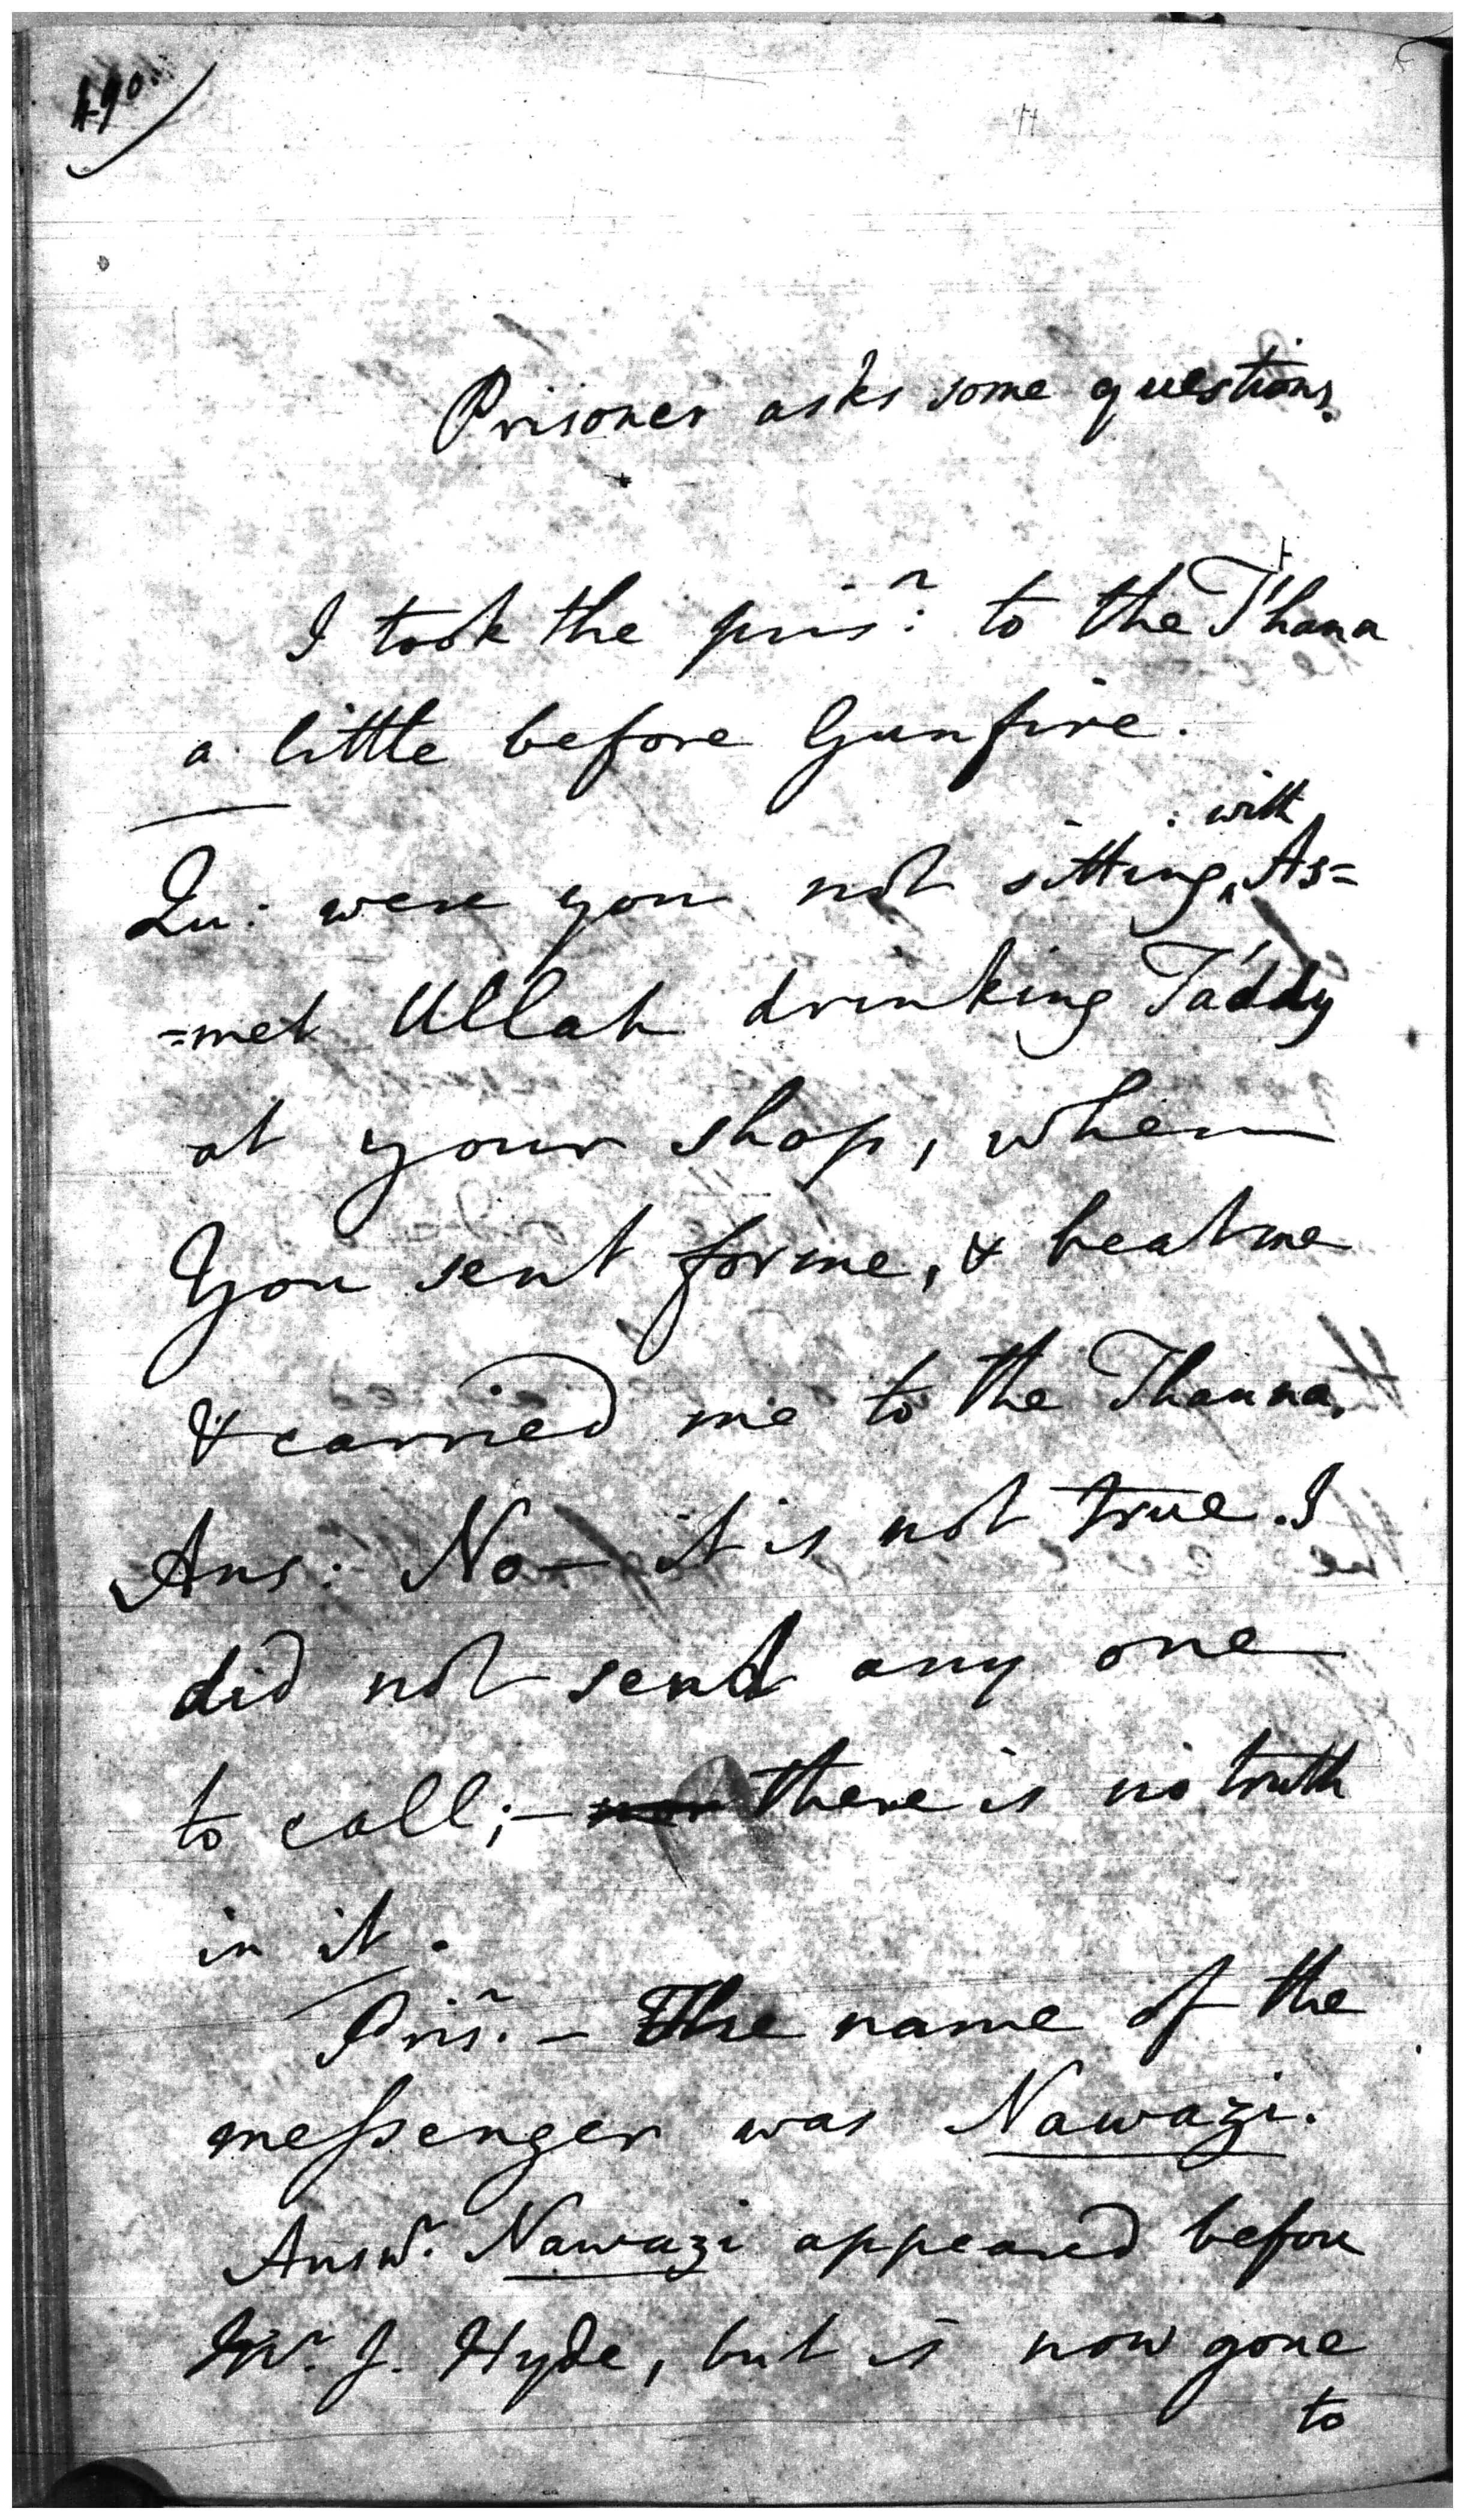 490.
Prisoner asks some questions.
I took the pris.r to the T'hana
a little before Gunfire.
Qu: were you not sitting with As=
=met Ullah drinking Táddy
at your shop, when
You sent for me, & beat me
& carried me to the Thanna.
Ans: No— it is not true. I
did not send any one
to call;— nor there is no truth
in it.
Pris.r — The name of the
messenger was Nawazi.
Answ.r Nawazi appeared before
Mr. J. Hyde, but is now gone
to